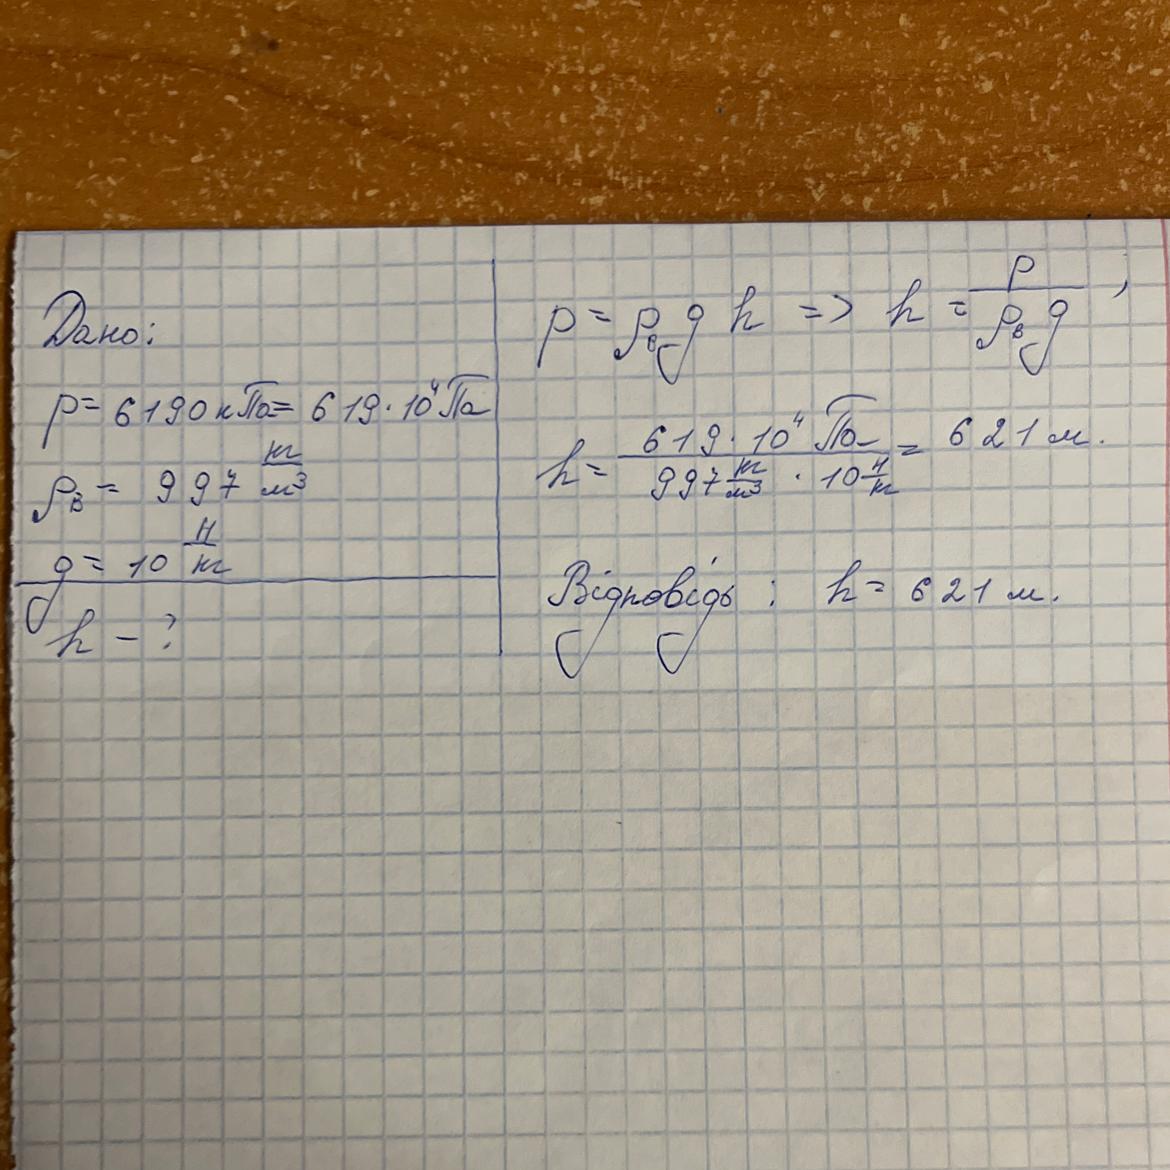 Дано:
p = 6190 кПа = 619·10⁴ Па
ρв = 997 кг/м³
g = 10 Н/кг
h – ?
p = ρв g h => h = p/(ρв g),
h = (619·10⁴ Па)/(997 кг/м³ · 10 Н/кг) = 621 м.
Відповідь: h = 621 м.